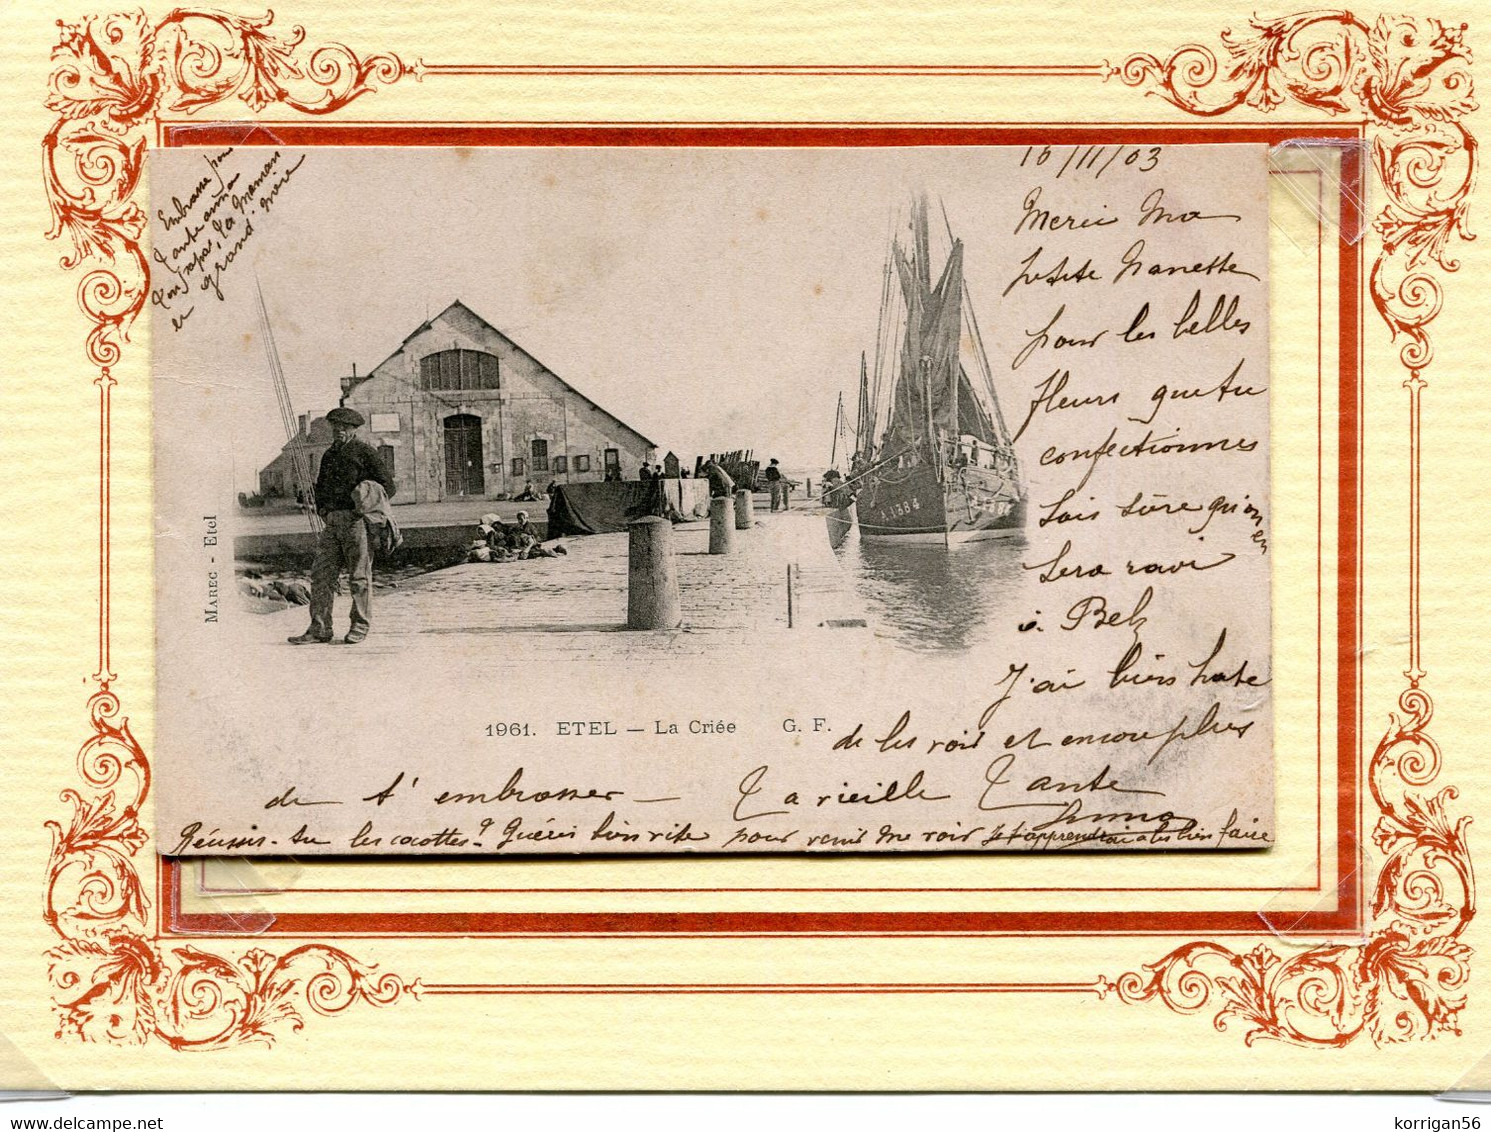 Embrasse pour
Tante anna
ton papa, ta maman
et grand'mère
16/11/03
Merci Ma
petite Nanette
pour les belles
fleurs que tu
confectionnes
sois sûre qu'on
en
sera ravi
à Belz
J'ai bien hate
de les voir et encore plus
de t'embrasser — Ta vieille Tante
Anna
Réussis-tu les cocottes? Guéris bien vite pour venir me voir je t'apprendrai à les bien faire
A.1384
MAREC - Etel
1961. ETEL — La Criée G. F.
korrigan56